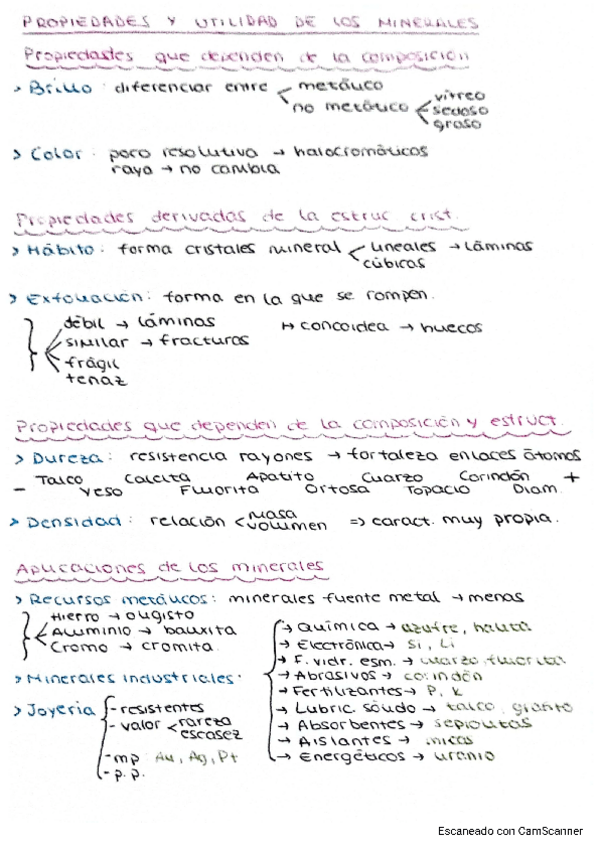 PROPIEDADES Y UTILIDAD DE LOS MINERALES
Propiedades que dependen de la composición
> Brillo: diferenciar entre metálico
no metálico vítreo
sedoso
graso
> Color: poco resolutiva → halocromáticos
raya → no cambia
Propiedades derivadas de la estruc. crist.
> Hábito: forma cristales mineral lineales → láminas
cúbicas
> Exfoliación: forma en la que se rompen.
débil → láminas ↦ concoidea → huecos
similar → fracturas
frágil
tenaz
Propiedades que dependen de la composición y estruct.
> Dureza: resistencia rayones → fortaleza enlaces átomos
- Talco Calcita Apatito Cuarzo Corindón +
Yeso Fluorita Ortosa Topacio Diam.
> Densidad: relación masa
volumen => caract. muy propia.
Aplicaciones de los minerales
> Recursos metálicos: minerales fuente metal → menas
Hierro → oligisto
Aluminio → bauxita
Cromo → cromita
> Minerales industriales:
→ Química → azufre, halita
→ Electrónica → Si, Li
→ F. vidr. esm. → cuarzo, fluorita
→ Abrasivos → corindón
→ Fertilizantes → P, K
→ Lubric. sólido → talco, grafito
→ Absorbentes → sepiolitas
→ Aislantes → micas
→ Energéticos → uranio
> Joyería - resistentes
- valor rareza
escasez
- mp: Au, Ag, Pt
- p.p.
Escaneado con CamScanner